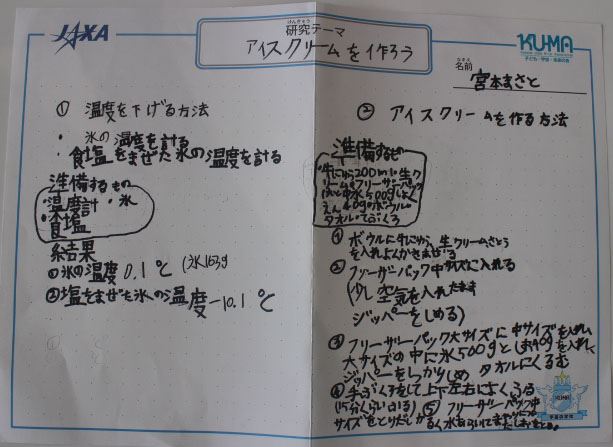 JAXA
けんきゅう
研究テーマ
アイスクリームを作ろう
KUMA
子ども・宇宙・未来の会
なまえ
名前
宮本まさと
① 温度を下げる方法
・氷の温度を計る
・食塩をまぜた氷の温度を計る
準備するもの
・温度計・氷
・食塩
結果
①氷の温度 0.1℃ (氷163g
②塩をまぜた氷の温度 -10.1℃
② アイスクリームを作る方法
準備するもの
・牛にゅう200ml・生ク
リーム・フリーザーパック
大と中・氷500g・しょく
えん40g・ボウル・
タオル・てぶくろ
① ボウルに牛にゅう、生クリーム、さとう
を入れよくかきまぜる
② フリーザーパック中サイズに入れる
(少し空気を入れたまま
ジッパーをしめる)
③ フリーザーパック大サイズに中サイズを入れ、
大サイズの中に氷500gとしお40gを入れて
ジッパーをしっかりしめタオルにくるむ
④ 手ぶくろをして上下左右によくふる
(15分くらいふる) ⑤ フリーザーパック中
サイズをとりだしかるく水あらいして
KUMA
宇宙少年団